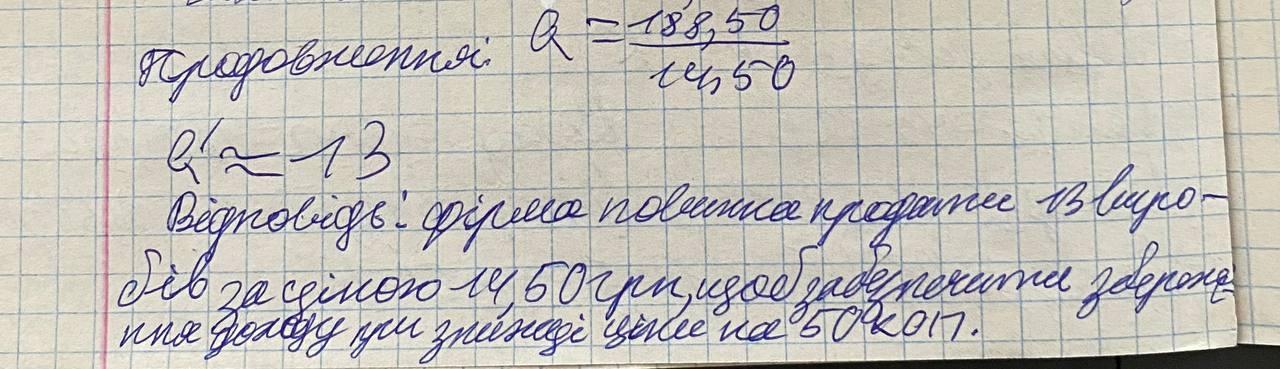 Продовження: Q = 188,50
14,50
Q' ≈ 13
Відповідь: фірма повинна продати 13 виро-
бів за ціною 14,50 грн, щоб забезпечити збереже
ння доходу при знижці ціни на 50 коп.